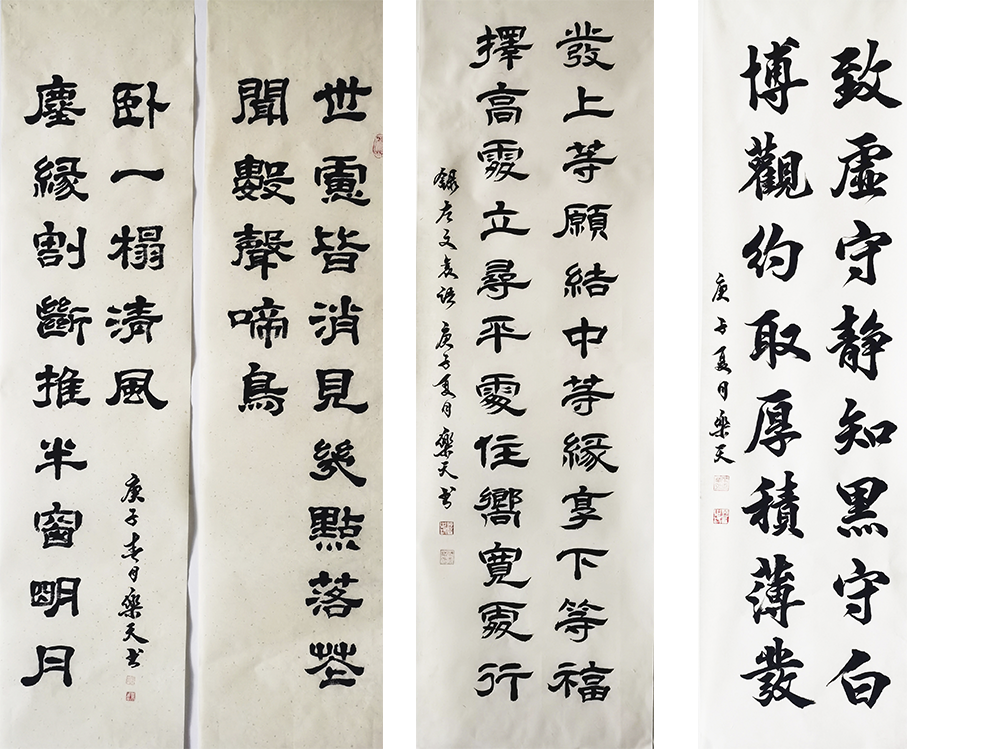 世慮皆消見幾點落花
聞數聲啼鳥
塵緣割斷推半窗明月
卧一榻清風
庚子春月樂天书
發上等願結中等緣享下等福
擇高處立尋平處住嚮寬處行
錄左文襄語 庚子夏月樂天书
致虛守静知黑守白
博觀約取厚積薄發
庚子夏月樂天